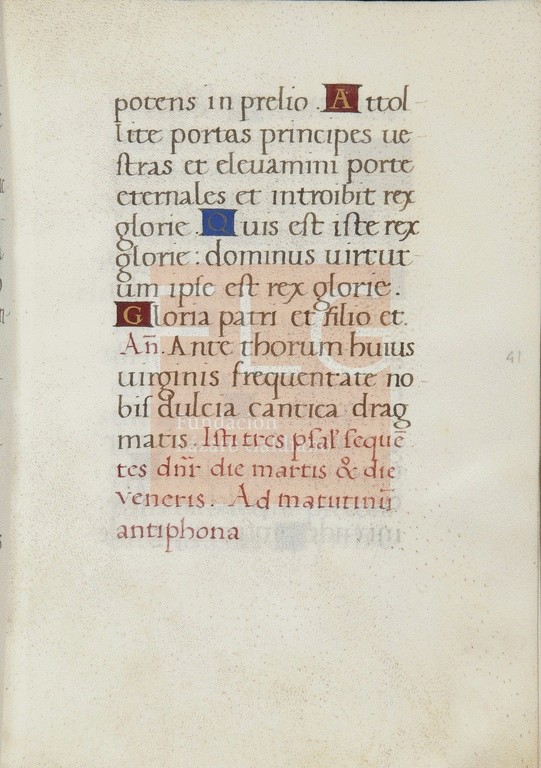 potens in prelio. Attol
lite portas principes ue
stras et eleuamini porte
eternales et introibit rex
glorie. Quis est iste rex
glorie: dominus uirtut
um ipse est rex glorie.
Gloria patri et filio et.
An̄. Ante thorum huius
uirginis frequentate no
bis dulcia cantica drag
matis. Isti tres psal' sequē
tes dn̄r die martis & die
veneris. Ad matutinū
antiphona
41
FLG
Fundación
Lázaro Galdiano